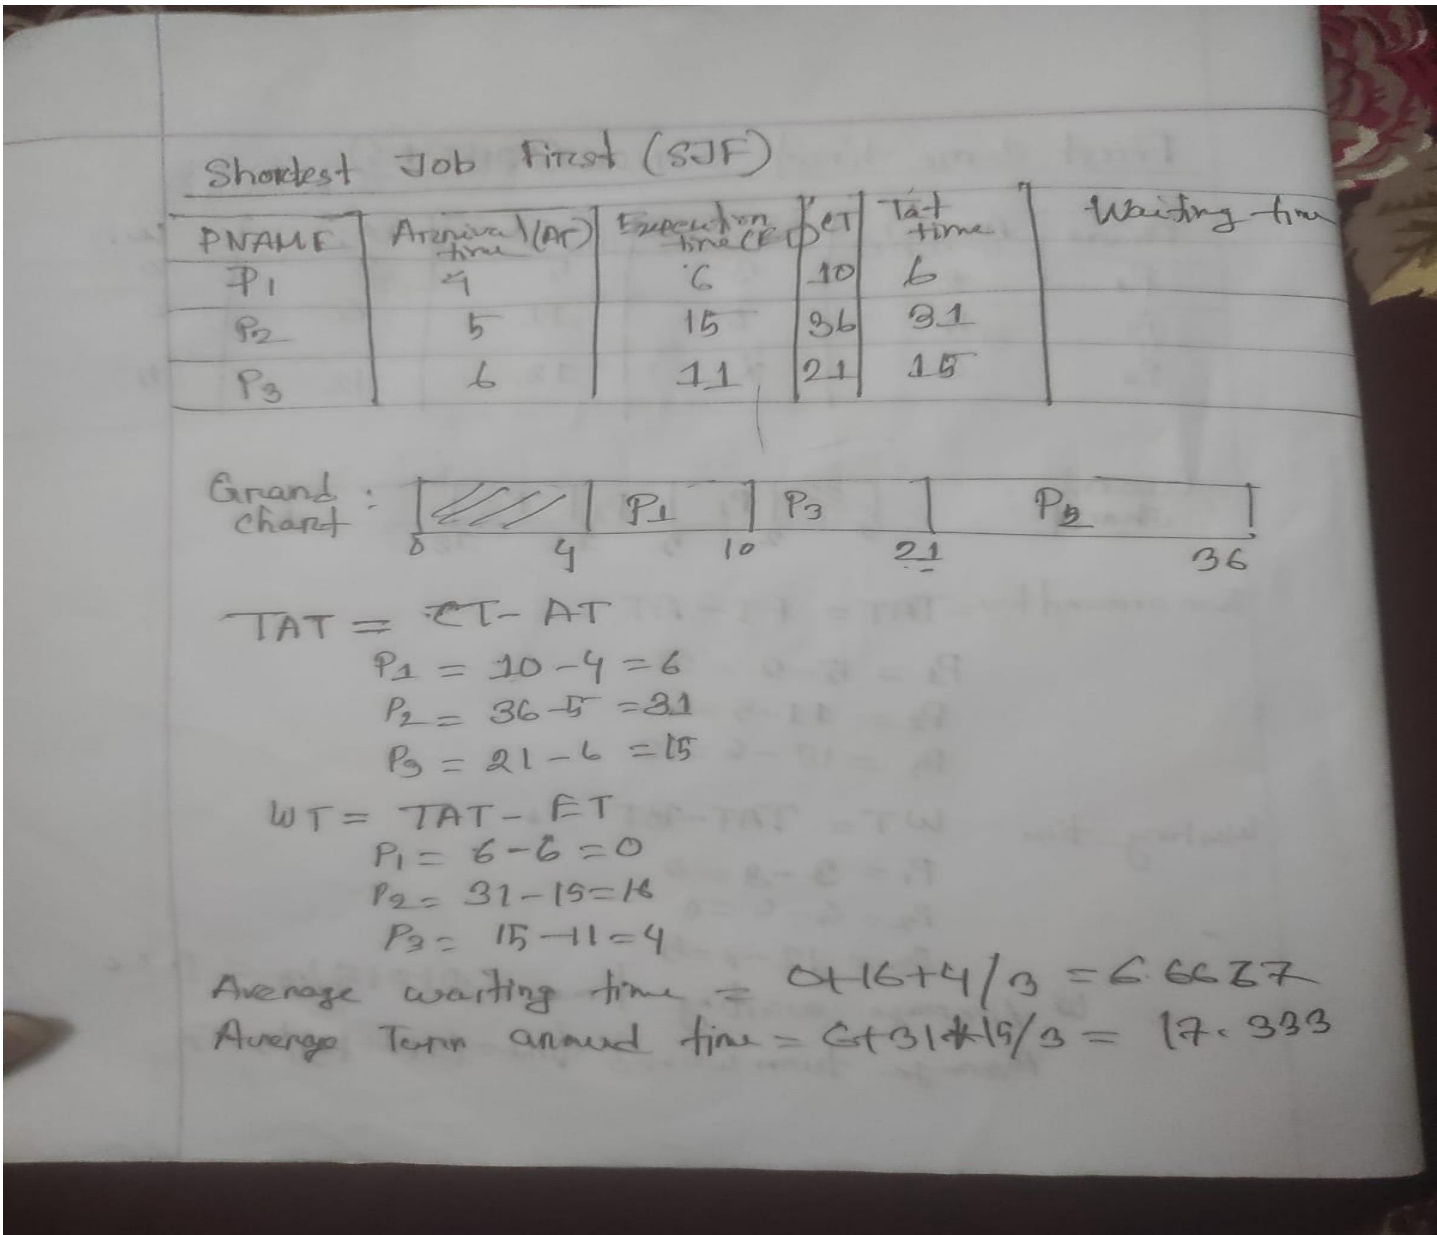 Shortest Job First (SJF)
PNAME Arrival time (AT) Execution time (ET) CT Tat time Waiting time
P1 4 6 10 6
P2 5 15 36 31
P3 6 11 21 15
Grand chart : P1 P3 P2
0 4 10 21 36
TAT = CT - AT
P1 = 10 - 4 = 6
P2 = 36 - 5 = 31
P3 = 21 - 6 = 15
WT = TAT - ET
P1 = 6 - 6 = 0
P2 = 31 - 15 = 16
P3 = 15 - 11 = 4
Average waiting time = 0+16+4/3 = 6.6667
Average Turn around time = 6+31+15/3 = 17.333